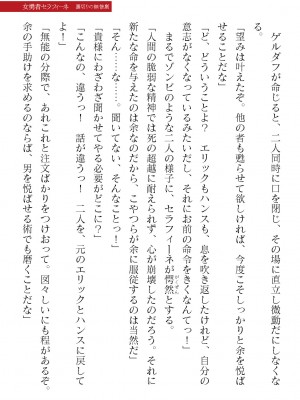 女勇者セラフィーネ 裏切りの解放劇
ゲルダフが命じると、二人同時に口を閉じ、その場に直立し微動だにしなくな
る。
「望みは叶えたぞ。他の者も甦らせて欲しければ、今度こそしっかりと余を悦ば
せることだな」
「ど、どういうことよ？ エリックもハンスも、息を吹き返したけれど、自分の
意志がなくなっているみたいだし、それにお前の命令をきくなんてっ！」
まるでゾンビのような二人の様子に、セラフィーネが愕然とする。
「人間の脆弱な精神では死の超越に耐えられず、心が崩壊したのだろう。それに
新たな命を与えたのは余なのだから、こやつらが余に服従するのは当然だ」
「そん……な……。聞いてない、そんなことっ！」
「貴様にわざわざ聞かせてやる必要がどこに？」
「こんなの、違うっ！ 話が違うっ！ 二人を、元のエリックとハンスに戻して
よ！」
「無能の分際で、あれこれと注文ばかりをつけおって。図々しいにも程があるぞ。
余の手助けを求めるのならば、男を悦ばせる術でも磨くことだな」